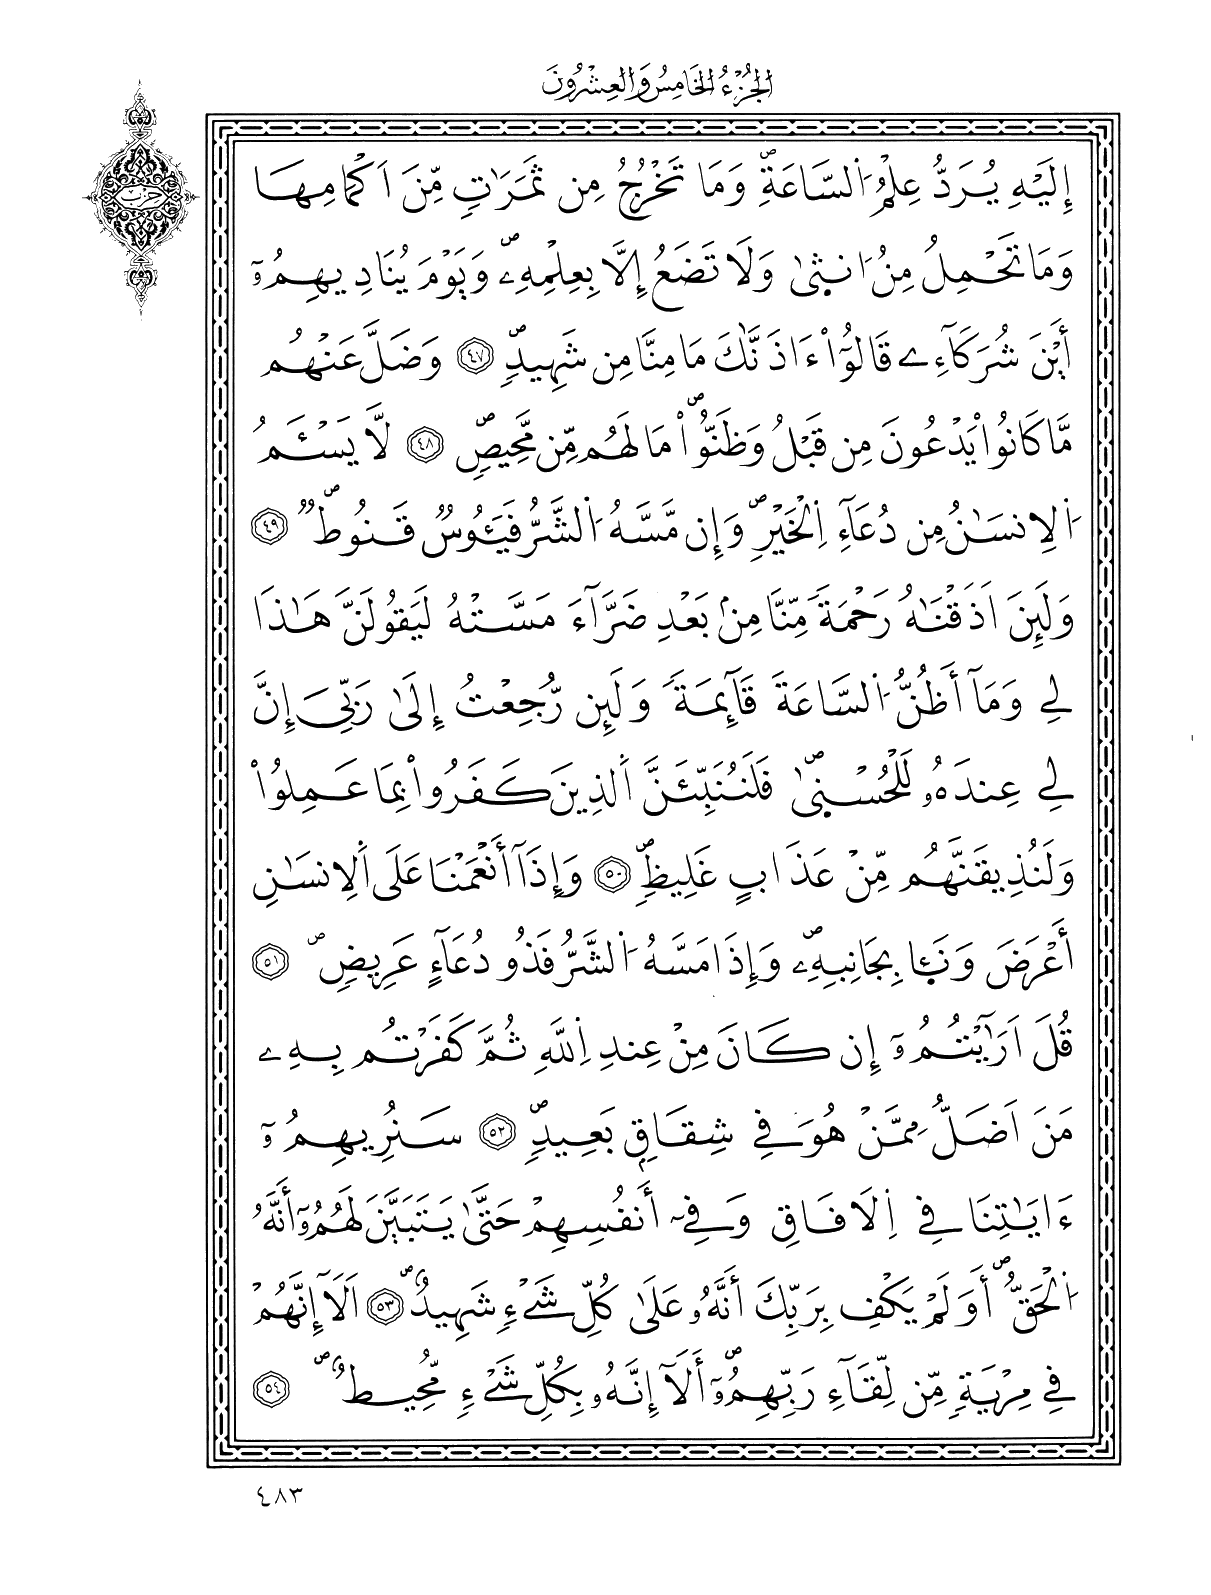 الجُزْءُ الخَامِسُ وَالعِشْرُونَ
حزب
إِلَيْهِ يُرَدُّ عِلْمُ اُ۬لسَّاعَةِۖ وَمَا تَخْرُجُ مِن ثَمَرَٰتٖ مِّنَ اَكْمَامِهَا
وَمَا تَحْمِلُ مِنُ ا۟نث۪ىٰ وَلَا تَضَعُ إِلَّا بِعِلْمِهِۦۖ وَيَوْمَ يُنَادِيهِمُۥٓ
أَيْنَ شُرَكَآءِے قَالُوٓاْ ءَاذَنَّٰكَ مَا مِنَّا مِن شَهِيدٖۖ ٤٧ وَضَلَّ عَنْهُم
مَّا كَانُواْ يَدْعُونَ مِن قَبْلُ وَظَنُّواْۖ مَا لَهُم مِّن مَّحِيصٖۖ ٤٨ لَّا يَسْـَٔمُ
اُ۬لِانسَٰنُ مِن دُعَآءِ اِ۬لْخَيْرِۖ وَإِن مَّسَّهُ اُ۬لشَّرُّ فَيَـُٔوسٞ قَنُوطٞۖ ٤٩
وَلَئِنَ اَذَقْنَٰهُ رَحْمَةٗ مِّنَّا مِنۢ بَعْدِ ضَرَّآءَ مَسَّتْهُ لَيَقُولَنَّ هَٰذَا
لِے وَمَآ أَظُنُّ اُ۬لسَّاعَةَ قَآئِمَةٗ وَلَئِن رُّجِعْتُ إِلَىٰ رَبِّيَ إِنَّ
لِے عِندَهُۥ لَلْحُسْن۪ىٰۖ فَلَنُنَبِّئَنَّ اَ۬لذِينَ كَفَرُواْ بِمَا عَمِلُواْ
وَلَنُذِيقَنَّهُم مِّنْ عَذَابٍ غَلِيظٖۖ ٥٠ وَإِذَآ أَنْعَمْنَا عَلَى اَ۬لِانسَٰنِ
أَعْرَضَ وَنَـَٔا بِجَانِبِهِۦۖ وَإِذَا مَسَّهُ اُ۬لشَّرُّ فَذُو دُعَآءٍ عَرِيضٖۖ ٥١
قُلَ اَرَٰٓيْتُمُۥٓ إِن كَانَ مِنْ عِندِ اِ۬للَّهِ ثُمَّ كَفَرْتُم بِهِۦ
مَنَ اَضَلُّ مِمَّنْ هُوَ فِے شِقَاقٍۢ بَعِيدٖۖ ٥٢ سَنُرِيهِمُۥٓ
ءَايَٰتِنَا فِے اِ۬لَافَاقِ وَفِےٓ أَنفُسِهِمْ حَتَّىٰ يَتَبَيَّنَ لَهُمُۥٓ أَنَّهُ
اُ۬لْحَقُّۖ أَوَلَمْ يَكْفِ بِرَبِّكَ أَنَّهُۥ عَلَىٰ كُلِّ شَےْءٖ شَهِيدٌۖ ٥٣ اَلَآ إِنَّهُمْ
فِے مِرْيَةٖ مِّن لِّقَآءِ رَبِّهِمُۥٓۖ أَلَآ إِنَّهُۥ بِكُلِّ شَےْءٖ مُّحِيطٌۖ ٥٤
٤٨٣